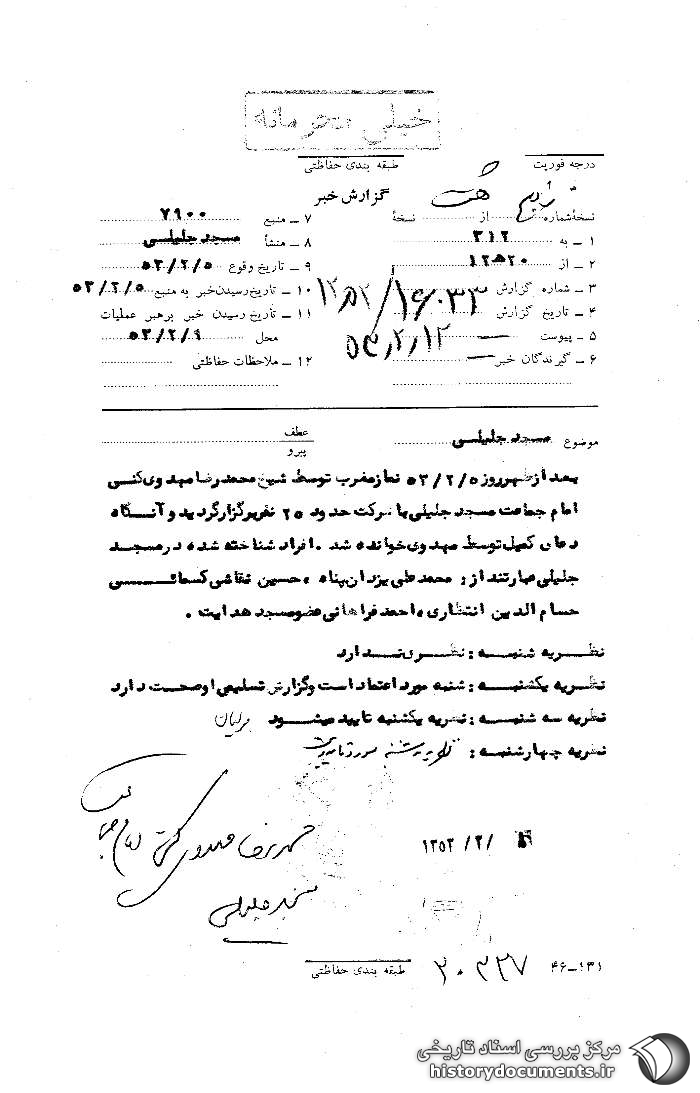 خیلی محرمانه
درجه فوریت
طبقه بندی حفاظتی
گزارش خبر
نسخهٔ شماره از نسخهٔ
۱ ـ به ۳۱۲
۲ ـ از ۲۰ ه‍ ۱۲
۳ ـ شماره گزارش ۱۶۰۳۳ / ۱۲ه‍۲۰
۴ ـ تاریخ گزارش ۵۳٫۲٫۱۲
۵ ـ پیوست —
۶ ـ گیرندگان خبر —
۷ ـ منبع ۷۹۰۰
۸ ـ منشأ مسجد جلیلی
۹ ـ تاریخ وقوع ۵۳/۲/۵
۱۰ ـ تاریخ رسیدن خبر به منبع ۵۳/۲/۵
۱۱ ـ تاریخ رسیدن خبر برهبر عملیات
محل ۵۳/۲/۹
۱۲ ـ ملاحظات حفاظتی
موضوع مسجد جلیلی
عطف
پیرو
بعد از ظهر روز ۵۳/۲/۵ نماز مغرب توسط شیخ محمد رضا مهدوی کنی
امام جماعت مسجد جلیلی با شرکت حدود ۲۵ نفر برگزار گردید و آنگاه
دعای کمیل توسط مهدوی خوانده شد . افراد شناخته شده در مسجد
جلیلی عبارتند از : محمد علی یزدان پناه ، حسین نقاشی کسمائی
حسام الدین انتظاری ، احمد فراهانی عضو مسجد هدایت .
نظریه شنبه : نظری ندارد
نظریه یکشنبه : شنبه مورد اعتماد است و گزارش تسلیمی او صحت دارد
نظریه سه شنبه : نظریه یکشنبه تایید میشود
نظریه چهارشنبه : نظریه سه شنبه مورد تایید است
۱۳۵۳/۲/
محمد رضا مهدوی کنی امام جماعت
مسجد جلیلی
طبقه بندی حفاظتی
۳۰۳۳۷
۴۶-۱۳۱
مرکز بررسی اسناد تاریخی
historydocuments.ir